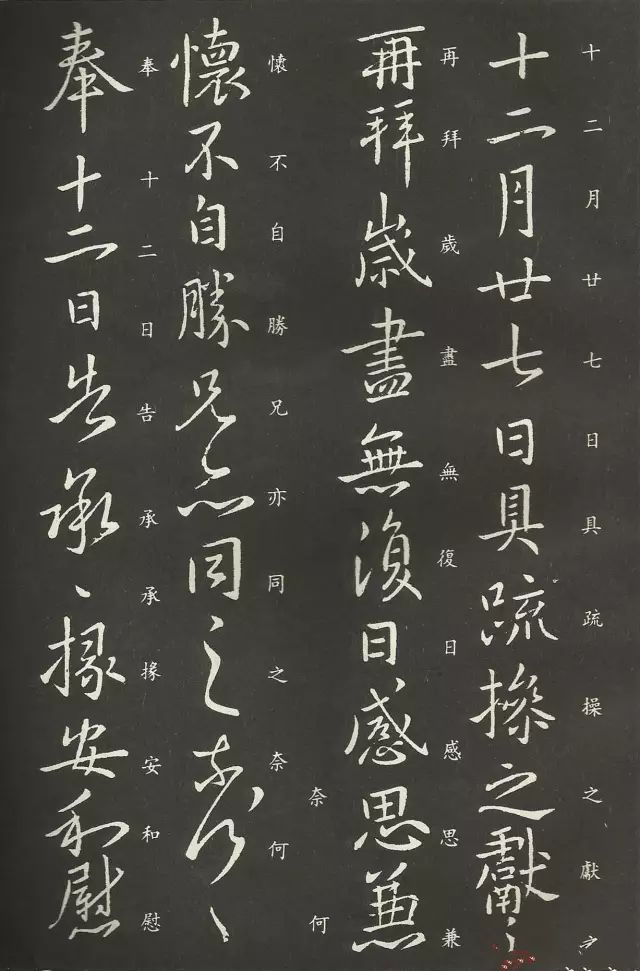 十二月廿七日具疏操之獻之
十二月廿七日具疏操之獻之
再拜歲盡無復日感思兼
再拜歲盡無復日感思兼
懷不自勝兄亦同之奈何
奈何
懷不自勝兄亦同之奈何〻
奉十二日告承承掾安和慰
奉十二日告承〻掾安和慰